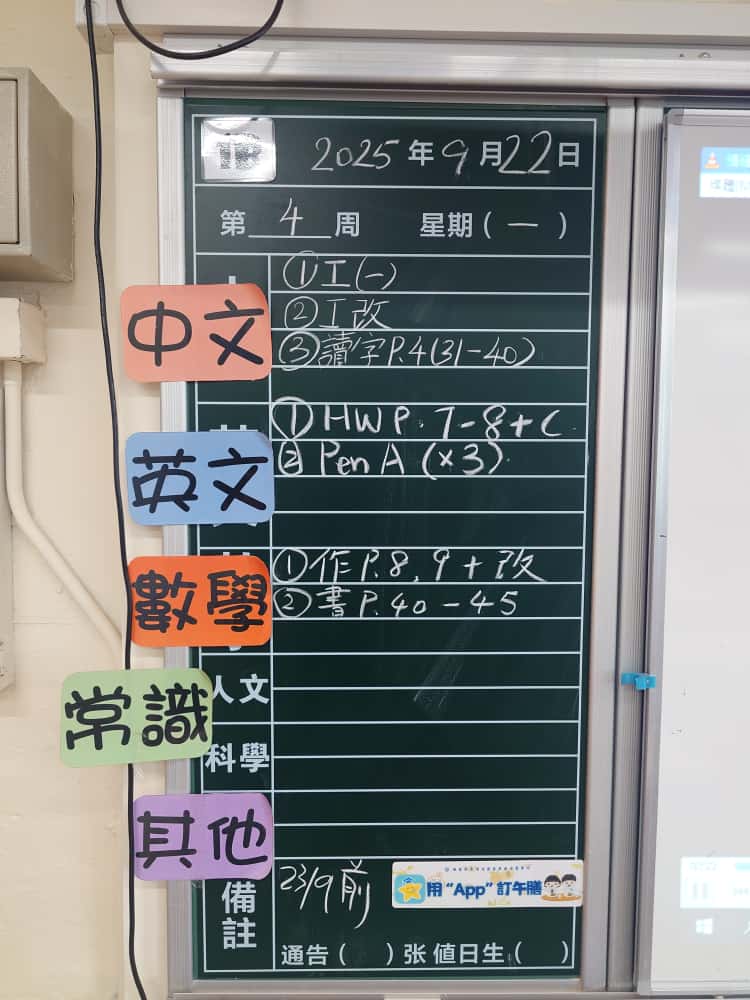 2025年9月22日
第 4 周 星期(一)
中文
①工(一)
②工改
③讀字P.4(31-40)
英文
①HW P. 7-8+C.
②Pen A (×3).
數學
①作P.8, 9+改
②書P.40-45
人文
常識
科學
其他
備註
23/9前
用“App”訂午膳
通告( )张 值日生( )